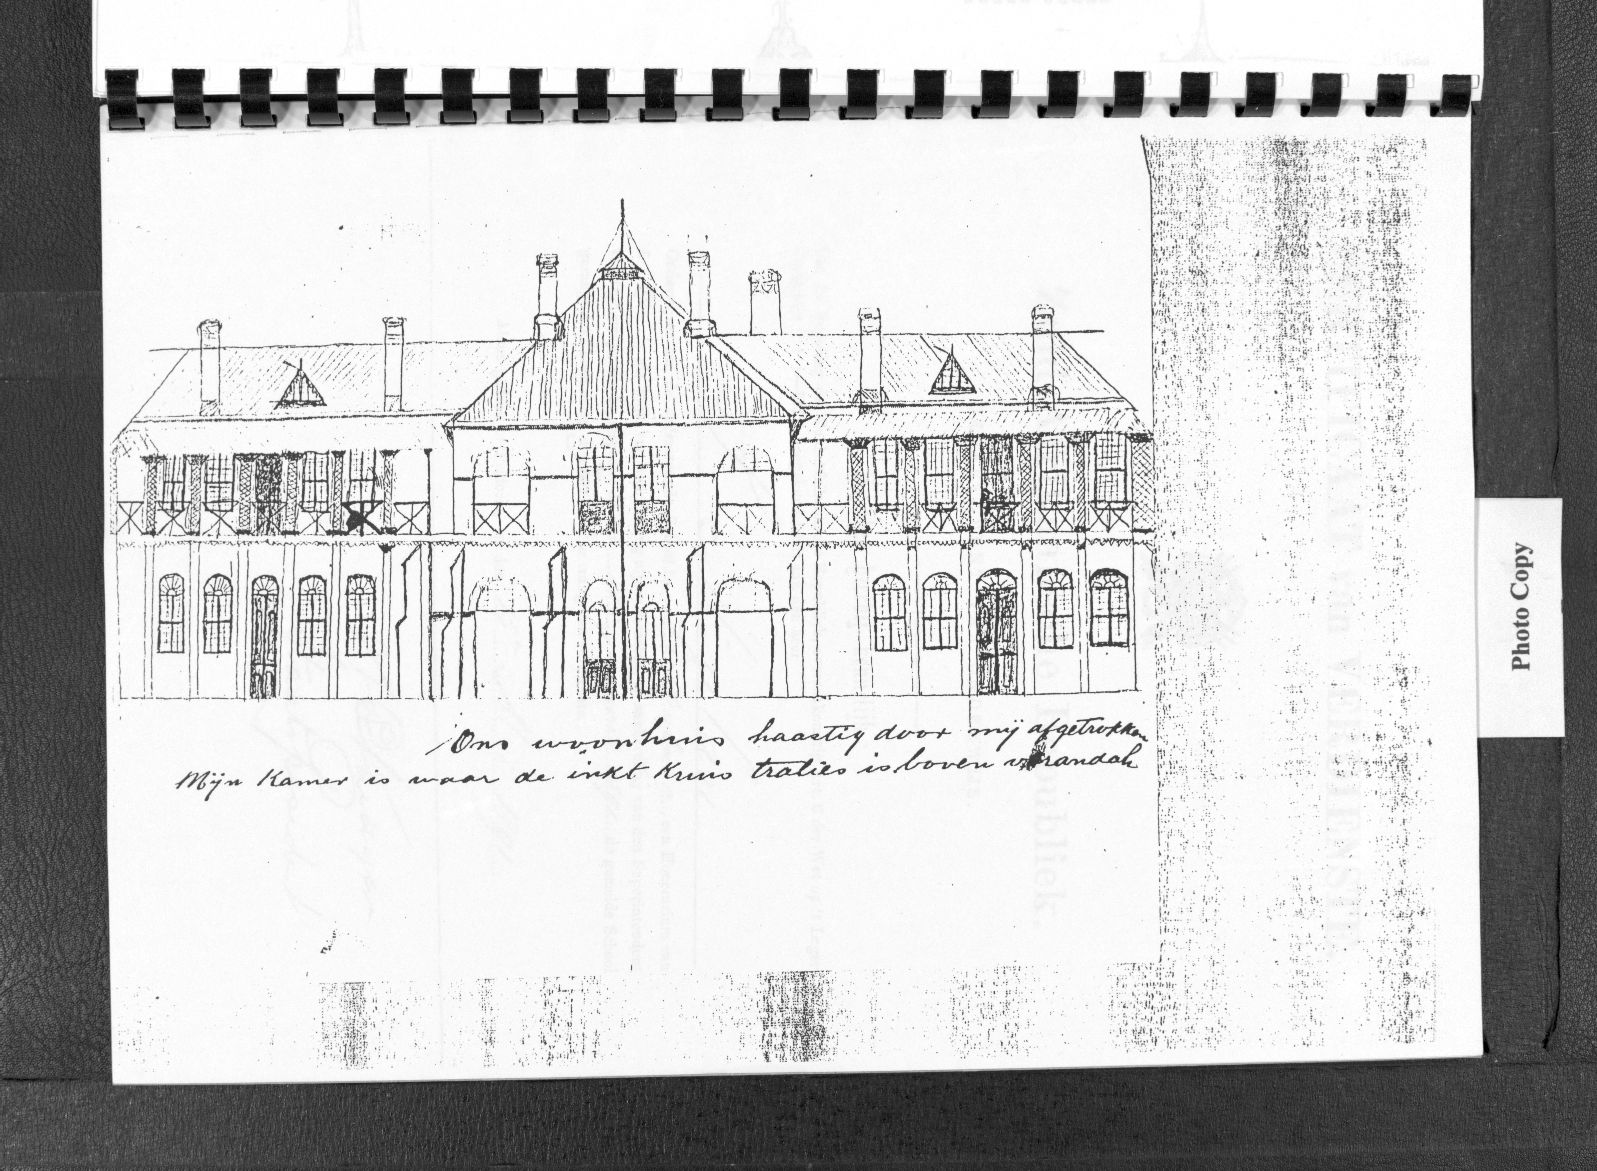 Ons woonhuis haastig door mij afgetrokken
Mijn Kamer is waar de inkt Kruis tralies is boven varandah
Photo Copy